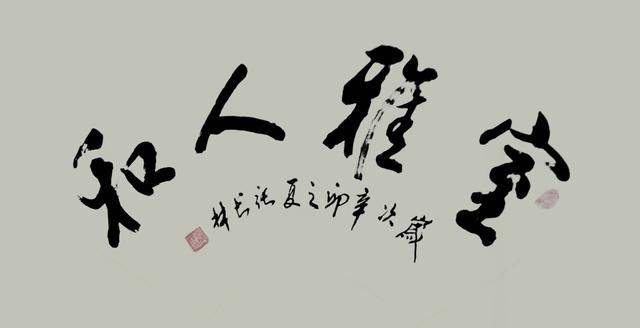 室雅人和
歲次辛卯之夏张长林